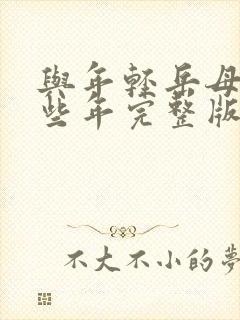 與年輕岳母
些年完整版
不大不小的夢